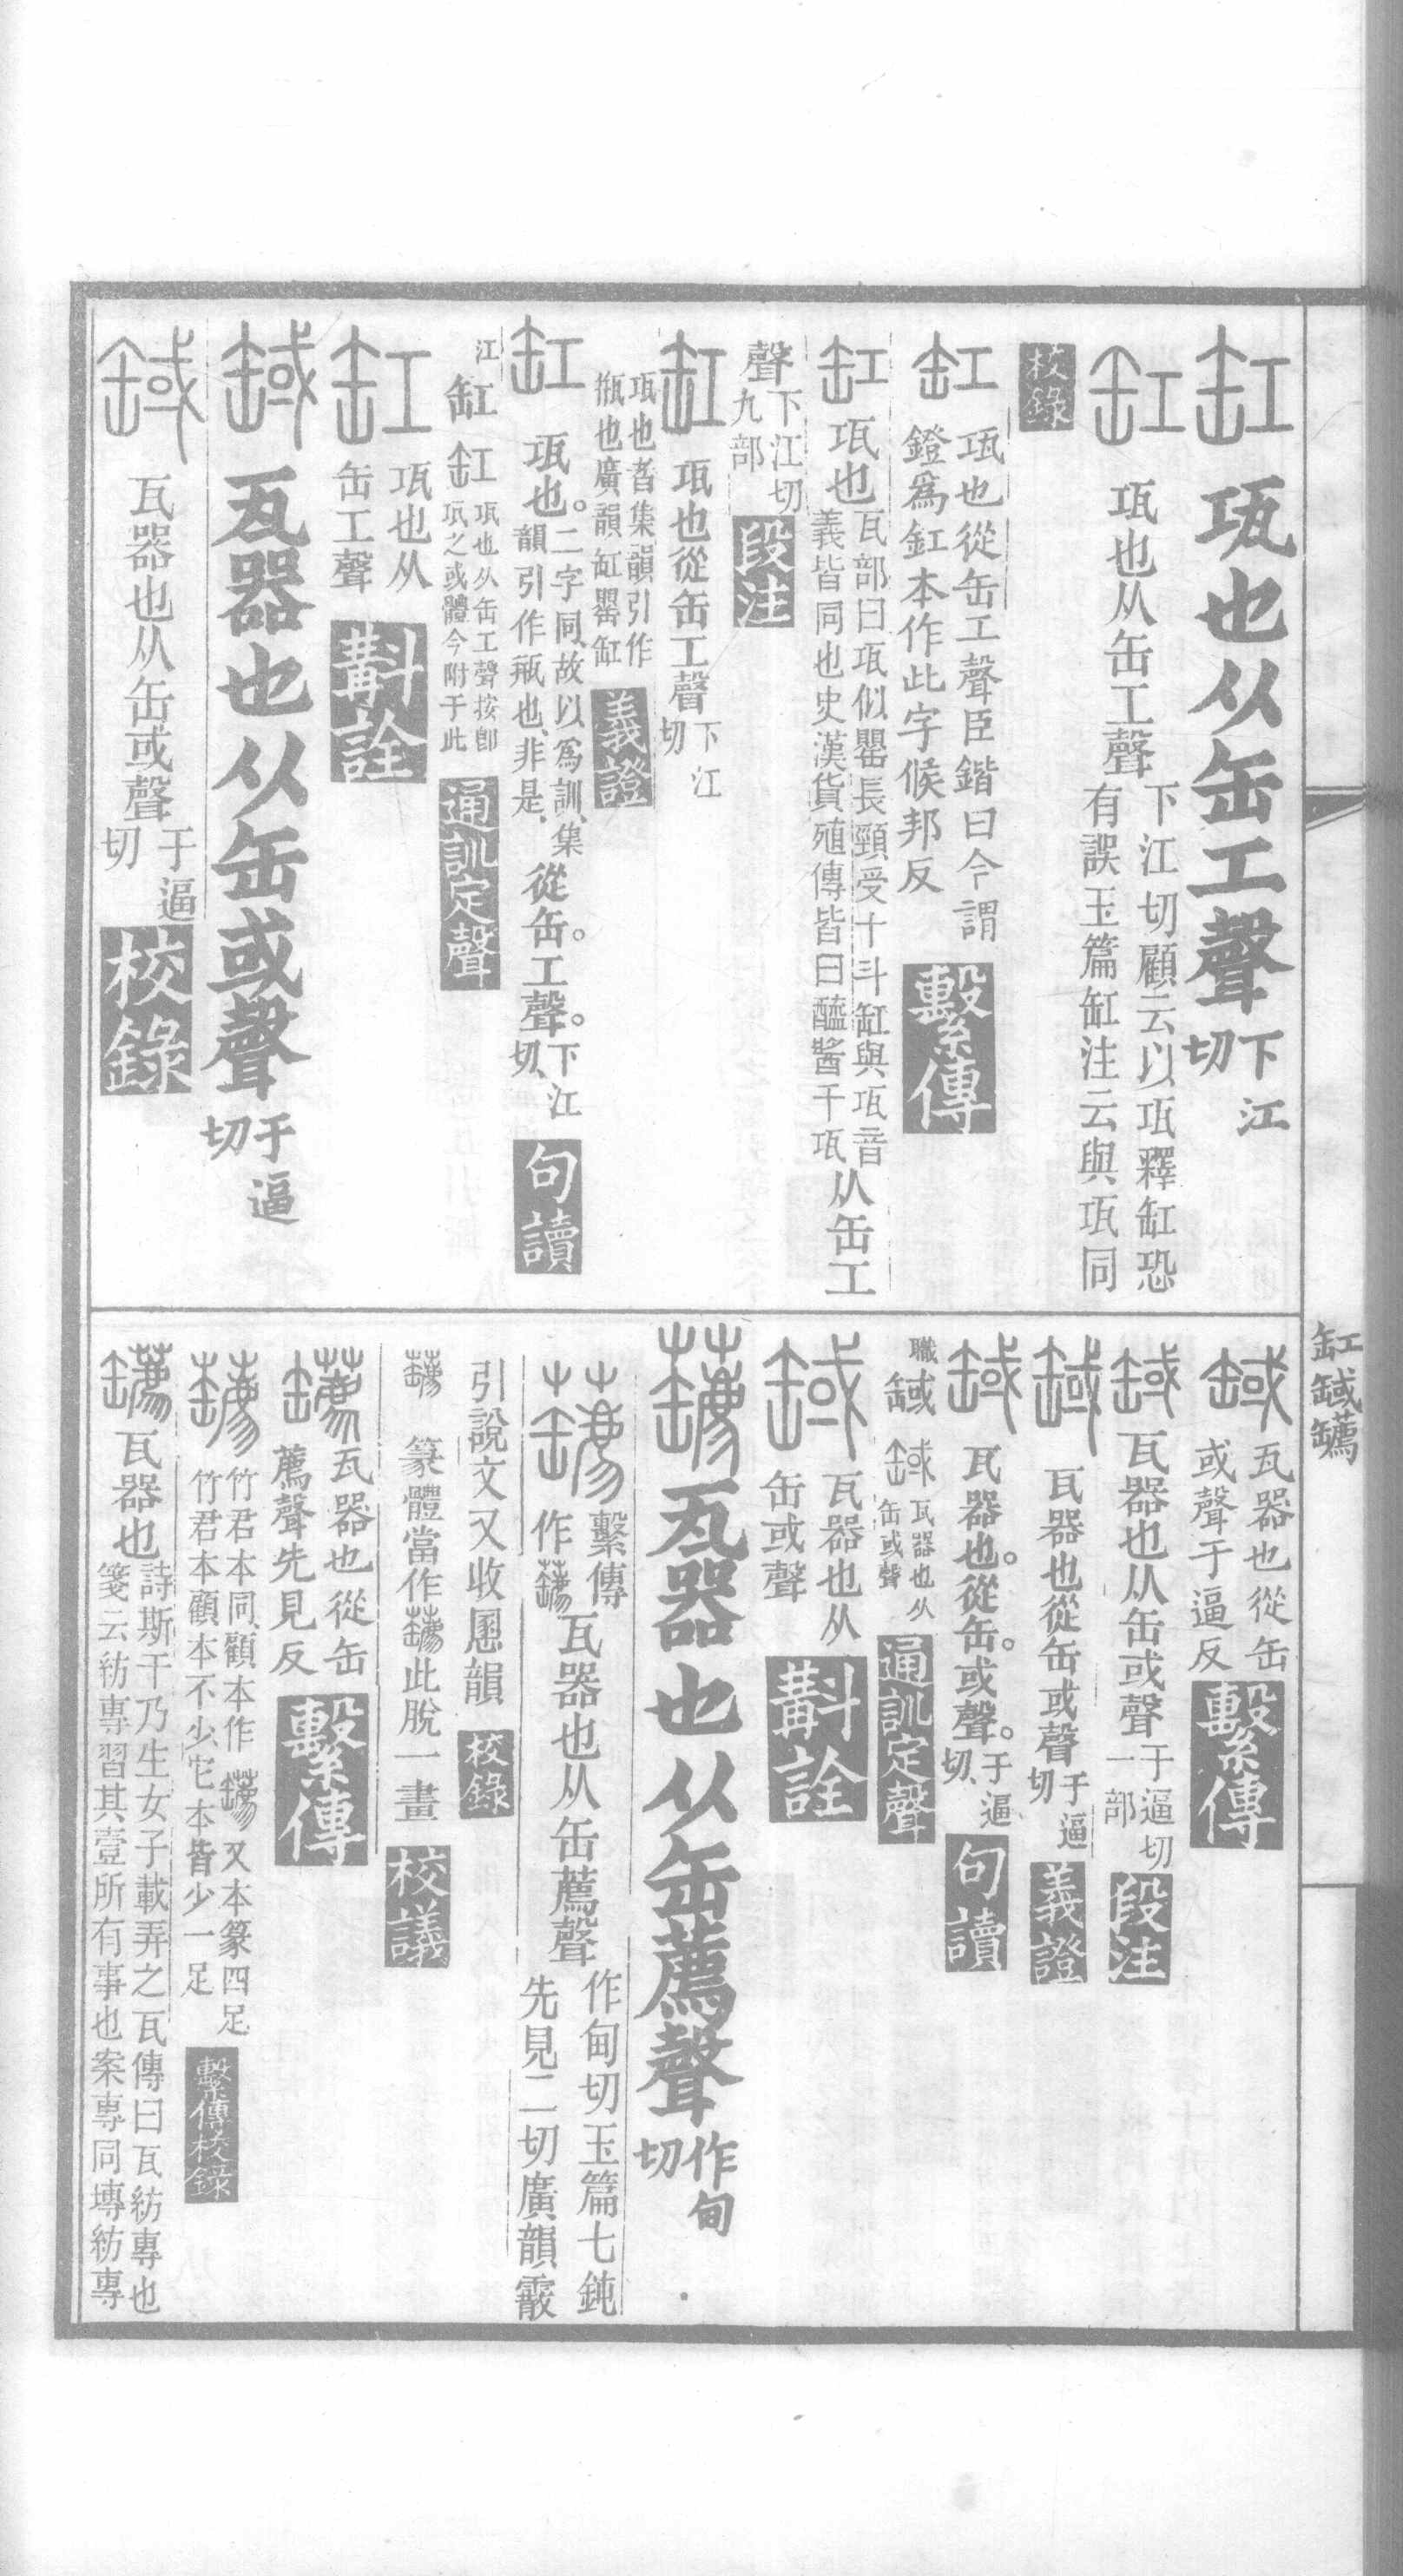 缸 㼚也从缶工聲下江切
缸 㼚也从缶工聲下江切顧云以㼚釋缸恐有誤玉篇缸注云與㼚同
校錄
缸 㼚也從缶工聲臣鍇曰今謂鐙爲缸本作此字候邦反 繫傳
缸 㼚也瓦部曰㼚似罌長頸受十斗缸與㼚音義皆同也史漢貨殖傳皆曰醯醬千㼚从缶工
聲下江切九部 段注
缸 㼚也從缶工聲下江切
㼚也者集韻引作瓶也廣韻缸罌缸 義證
缸 㼚也。二字同、故以爲訓、集韻引作瓶也、非是、從缶。工聲。下江切、 句讀
江 缸 缸 㼚也从缶工聲按卽㼚之或體今附于此 通訓定聲
缸 㼚也从缶工聲 斠詮
䍞 瓦器也从缶或聲于逼切
䍞 瓦器也从缶或聲于逼切 校錄
䍞 瓦器也從缶或聲于逼反 繫傳
䍞 瓦器也从缶或聲于逼切一部 段注
䍞 瓦器也從缶或聲于逼切 義證
䍞 瓦器也。從缶。或聲。于逼切、 句讀
職 䍞 䍞 瓦器也从缶或聲 通訓定聲
䍞 瓦器也从缶或聲 斠詮
𦉍 瓦器也从缶薦聲作甸切
𦉍 繫傳作𦉍瓦器也从缶薦聲作甸切玉篇七鈍先見二切廣韻霰
引說文又收慁韻 校錄
𦉍 篆體當作𦉍此脫一畫 校議
𦉍 瓦器也從缶薦聲先見反 繫傳
𦉍 竹君本同、顧本作𦉍又本篆四足竹君本顧本不少、它本皆少一足 繫傳校錄
𦉍 瓦器也詩斯干乃生女子載弄之瓦傳曰瓦紡專也箋云紡專習其壹所有事也案專同塼紡專
缸䍞𦉍